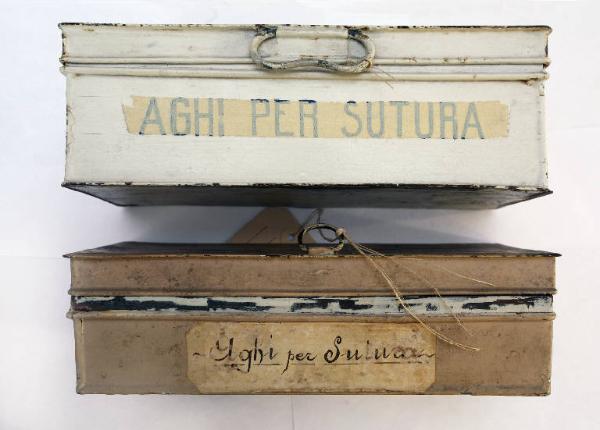 AGHI PER SUTURA
Aghi per Sutura